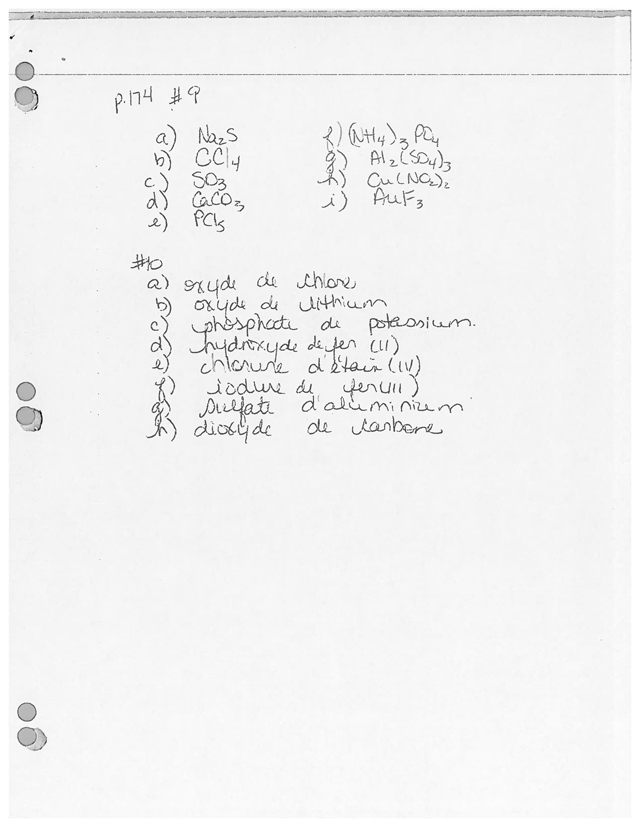 p.174 #9
a) Na₂S
b) CCl₄
c) SO₃
d) CaCO₃
e) PCl₅
f) (NH₄)₃PO₄
g) Al₂(SO₄)₃
h) Cu(NO₂)₂
i) AuF₃
#10
a) oxyde de chlore
b) oxyde de lithium
c) phosphate de potassium.
d) hydroxyde de fer (II)
e) chlorure d'étain (IV)
f) iodure de fer (II)
g) sulfate d'aluminium
h) dioxyde de carbone